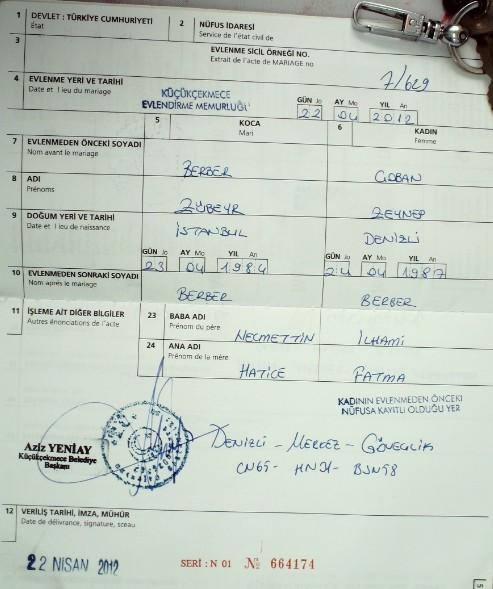 1 DEVLET : TÜRKİYE CUMHURİYETİ
Etat
2 NÜFUS İDARESİ
Service de l'état civil de
3 EVLENME SİCİL ÖRNEĞİ NO.
Extrait de l'acte de MARIAGE no
7/629
4 EVLENME YERİ VE TARİHİ
Date et lieu du mariage
KÜÇÜKÇEKMECE
EVLENDİRME MEMURLUĞU
GÜN Jo AY Mo YIL An
22 04 2012
5 KOCA
Mari
6 KADIN
Femme
7 EVLENMEDEN ÖNCEKİ SOYADI
Nom avant le mariage
BERBER ÇOBAN
8 ADI
Prénoms
ZÜBEYR ZEYNEP
9 DOĞUM YERİ VE TARİHİ
Date et lieu de naissance
İSTANBUL DENİZLİ
GÜN Jo AY Mo YIL An GÜN Jo AY Mo YIL An
23 04 1984 24 04 1987
10 EVLENMEDEN SONRAKİ SOYADI
Nom après le mariage
BERBER BERBER
11 İŞLEME AİT DİĞER BİLGİLER
Autres énonciations de l'acte
23 BABA ADI
Prénom du père
NECMETTİN İLHAMİ
24 ANA ADI
Prénom de la mère
HATİCE FATMA
KADININ EVLENMEDEN ÖNCEKİ
NÜFUSA KAYITLI OLDUĞU YER
DENİZLİ - MERCEZ -
Aziz YENİAY
Küçükçekmece Belediye
Başkanı
12 VERİLİŞ TARİHİ, İMZA, MÜHÜR
Date de délivrance, signature, sceau
22 NISAN 2012
SERİ : N 01 № 664174